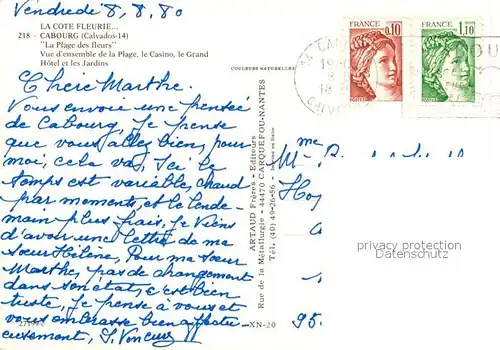 Vendredi 8, 8. 80
LA COTE FLEURIE...
218 - CABOURG (Calvados-14)
"La Plage des fleurs"
Vue d'ensemble de la Plage, le Casino, le Grand
Hôtel et les Jardins
COULEURS NATURELLES
FRANCE
0,10
POSTES
FRANCE
1,10
POSTES
Cheré Marthe.
Vous envoie une pensée
de Cabourg, Je pense
que vous allez bien, pour
moi, cela va, Ici le
temps est variable, chaud
par moments, et le lende-
main plus frais, Je Viens
d'avoir une lettre de ma
Sœur Hélène, Pour ma sœur
Marthe, pas de changement
dans son état, c'est bien
triste, Je pense à vous et
vous embrasse bien affectu-
eusement,
ARTAUD Frères - Editeurs
Rue de la Métallurgie - 44470 CARQUEFOU-NANTES
Tél. (40) 49-26-56 -
XN-20
Mme
95.
privacy protection
Datenschutz